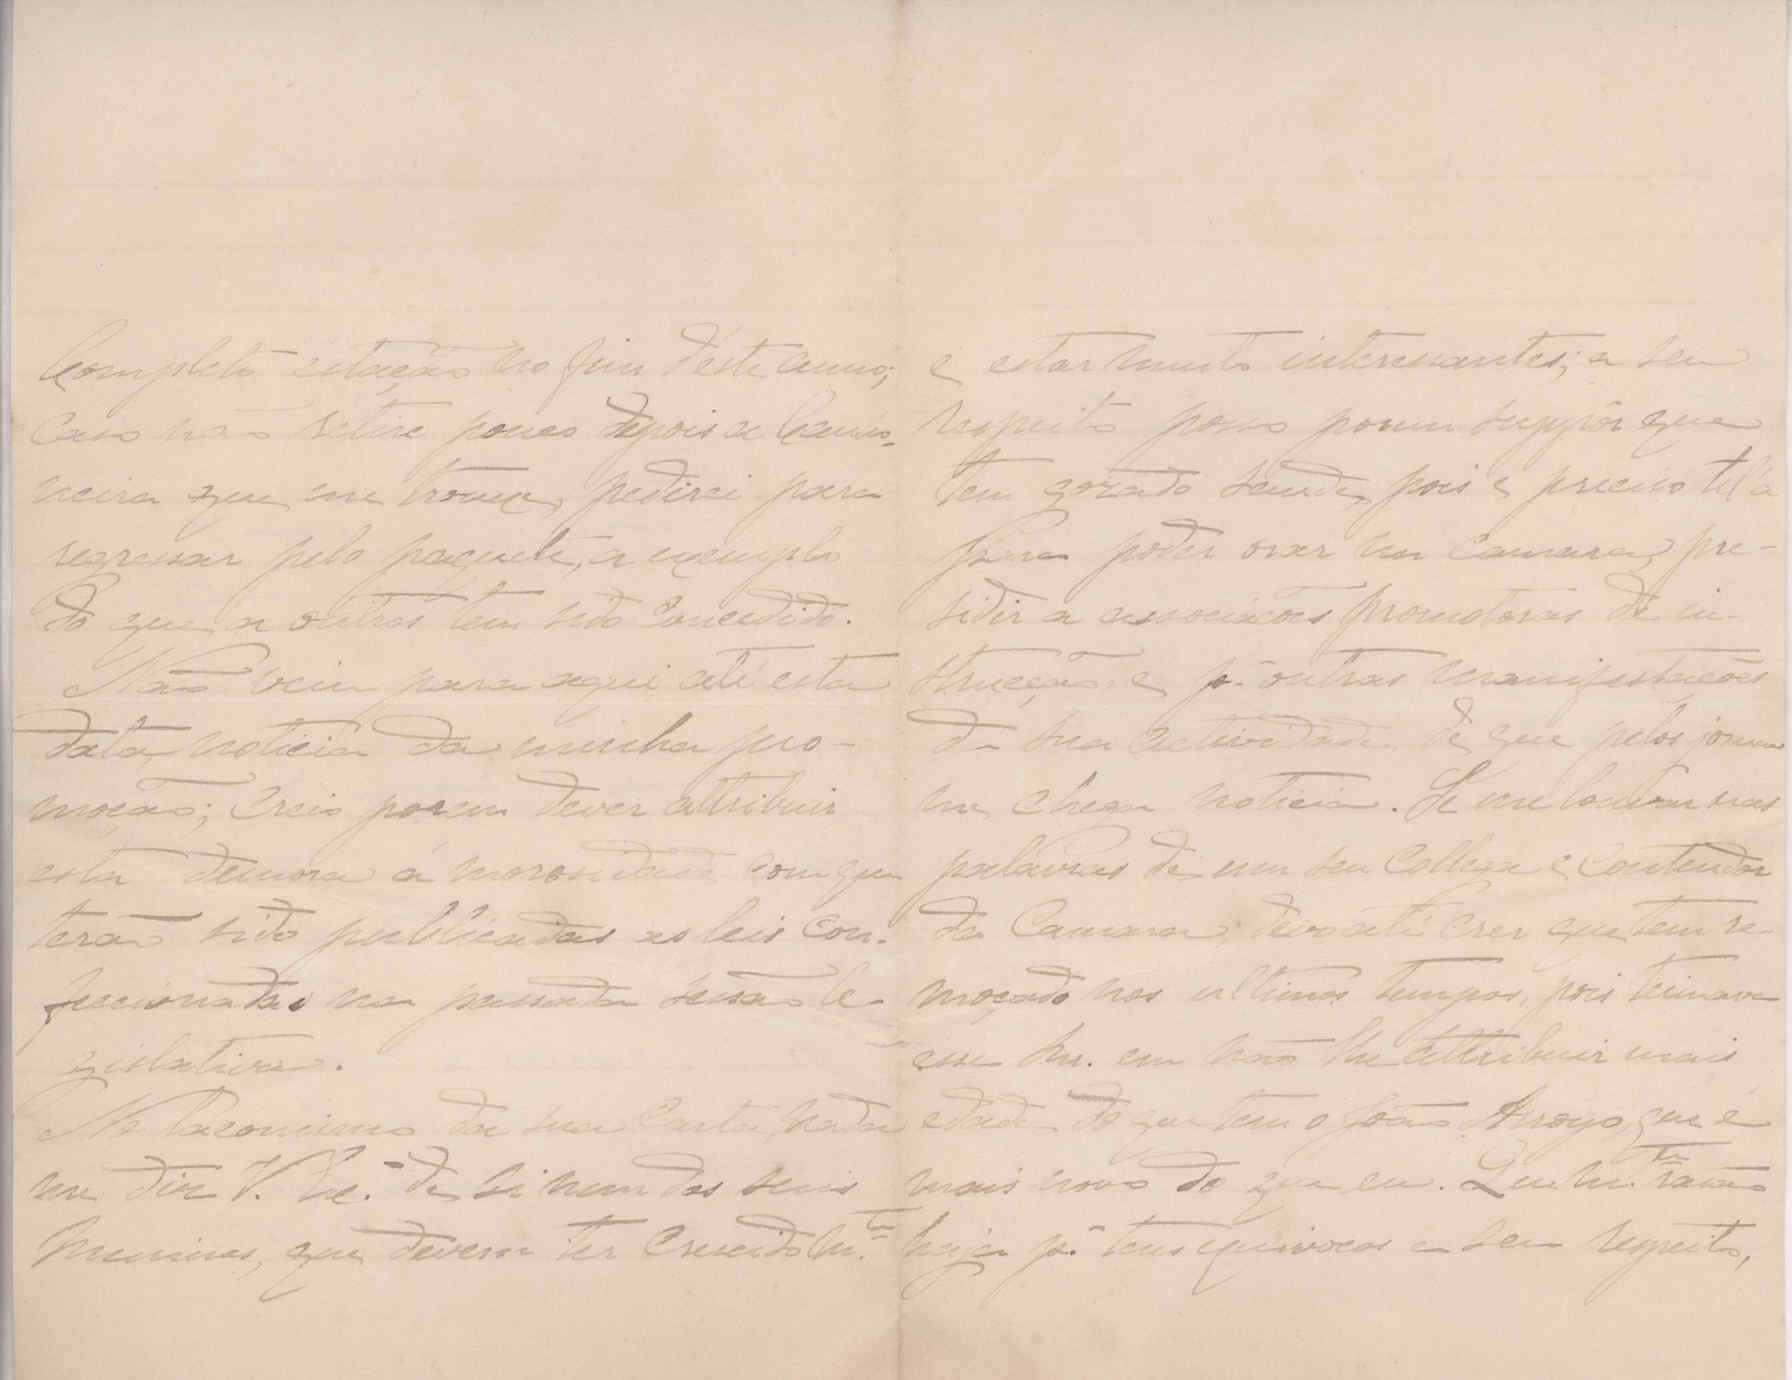 Completo estação no fim d'este anno;
caso não retire pouco depois a canho-
neira que me trouxe, pedirei para
regressar pelo paquete, a exemplo
do que a outros tem sido concedido.
Não veiu para aqui até esta
data noticia da minha pro-
moção; creio porem dever attribuir
esta demora á morosidade com que
terão sido publicadas as leis con-
feccionadas na passada sessão le-
gislativa.
No laconismo da sua carta, nada
me diz V. Exª de si nem dos seus
meninos, que devem ter crescido m.to
e estar muito interessantes; a seu
respeito posso porem suppôr que
tem gozado saude, pois é preciso tel'a
para poder orar na Camara, pre-
sidir a associações promotoras de in-
strucção e pª outras manifestações
da sua actividade de que pelos jornaes
me chega noticia. Se me louvar nas
palavras de um seu collega e contendor
da Camara, devo até crer que tem re-
moçado nos ultimos tempos, pois teimava
esse Snr. em não lhe attribuir mais
edade do que tem o João Arroyo, que é
mais novo do que eu. Que m.ta razão
haja pª taes equivocos a seu respeito,